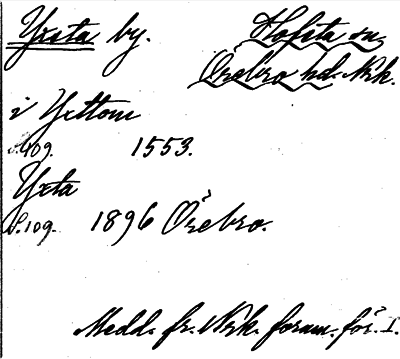 Yxsta by. Hofsta sn.
Örebro hd. Nrk.
i Yxstom
s.109. 1553.
Yxta
S.109. 1896 Örebro.
Medd. fr. Nrk. fornm. för. I.